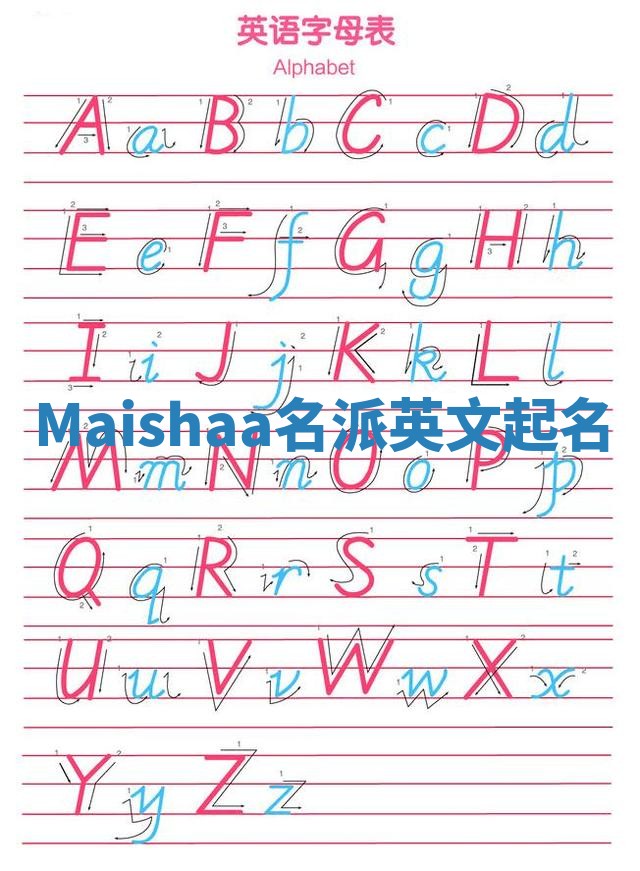 英语字母表
Alphabet
A a B b C c D d
E e F f G g H h
I i J j K k L l
Maishaa名派英文起名
M m N n O o P p
Q q R r S s T t
U u V v W w X x
Y y Z z